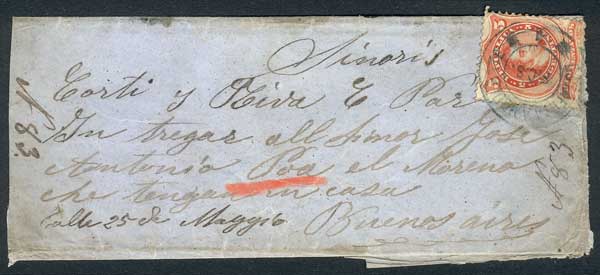 Sinoris
Corti y Riva C Paz
In tregar all Sinor José
Antonio Poa el Moreno
che tengan in casa
Calle 25 de Maggio Buenos aires
Nº 83
Nº 83
5 5